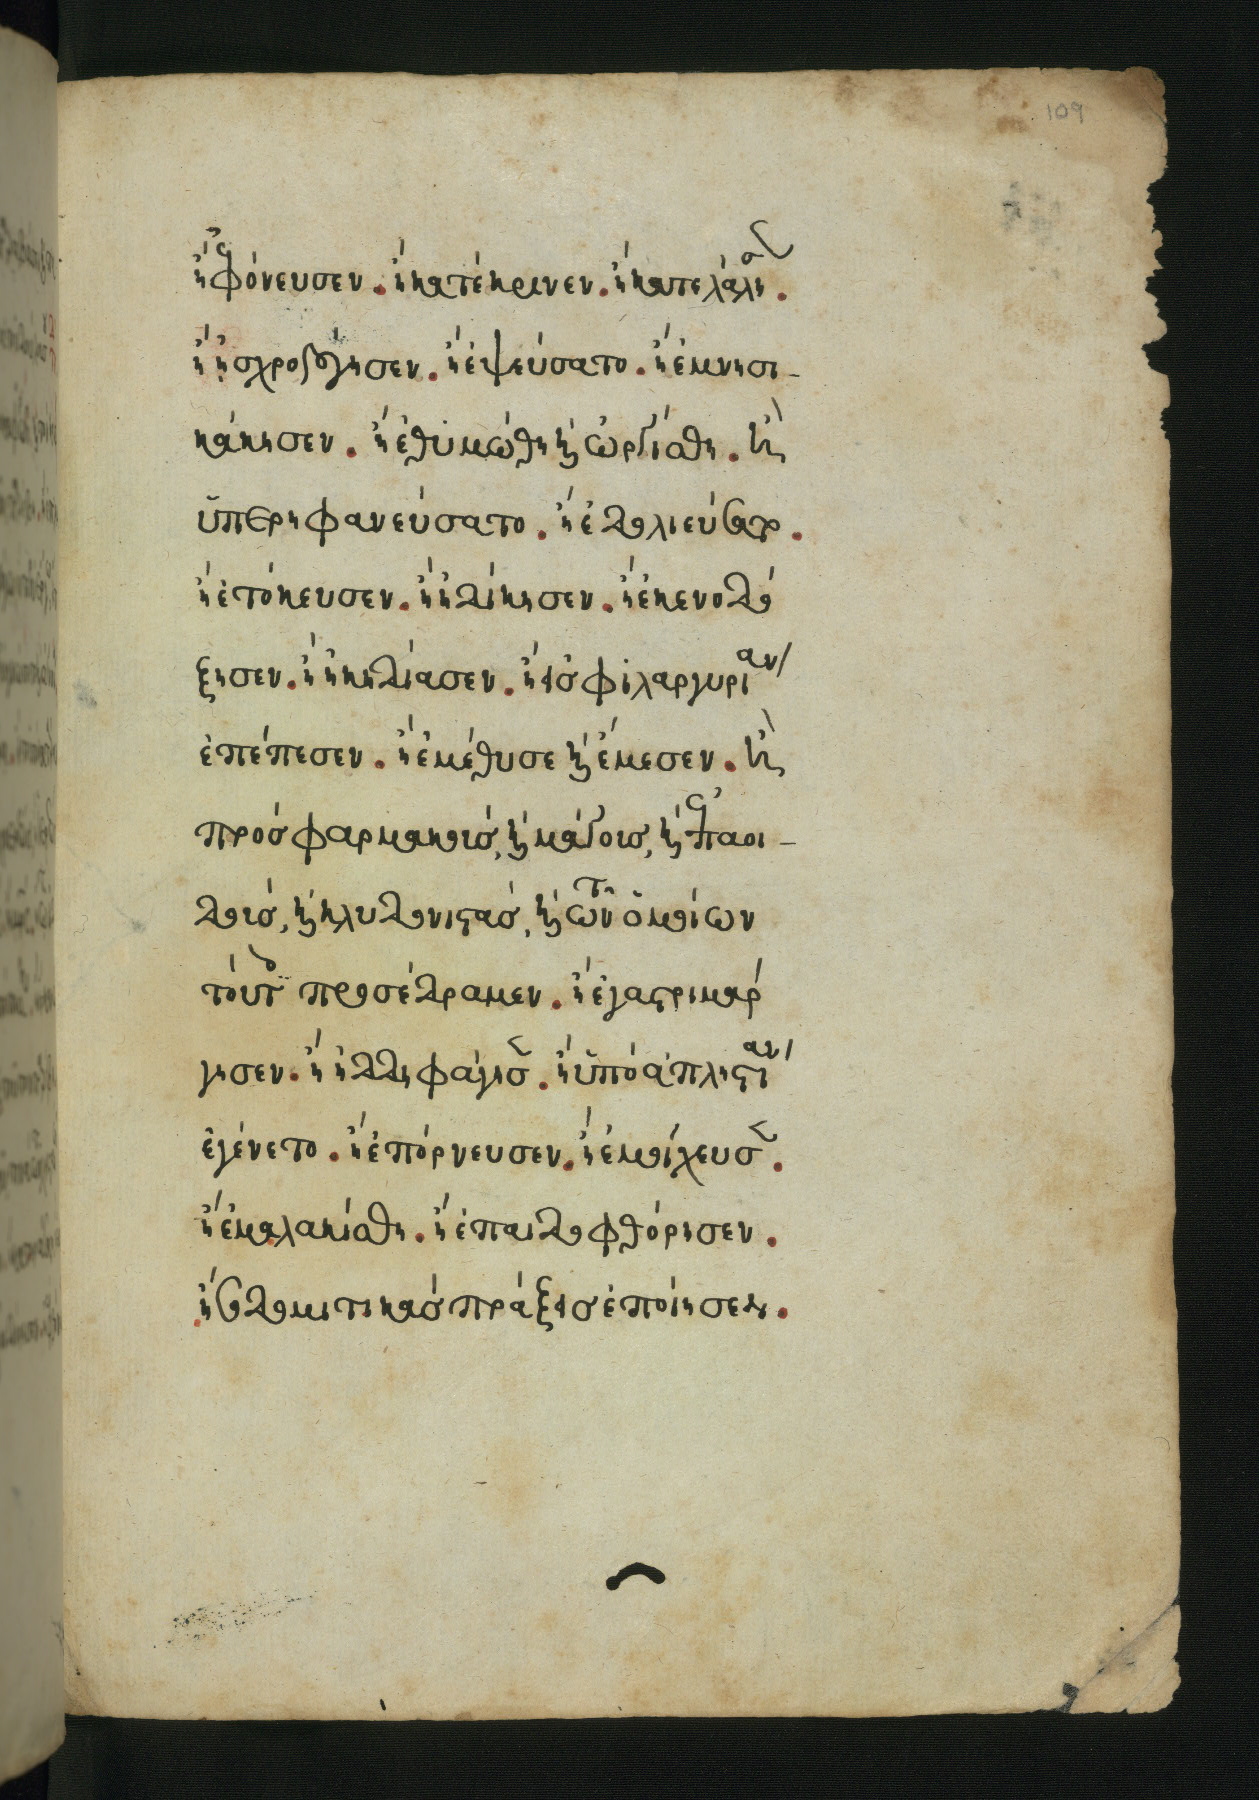 109
ἢ ἐφόνευσεν. ἢ κατέκρινεν. ἢ κατελάλησεν.
ἢ ἠσχρολόγησεν. ἢ ἐψεύσατο. ἢ ἐμνησι-
κάκησεν. ἢ ἐθυμώθη καὶ ὠργίσθη. ἢ
ὑπερηφανεύσατο. ἢ ἐδολιεύσατο.
ἢ ἐτόκευσεν. ἢ ἠδίκησεν. ἢ ἐκενοδό
ξησεν. ἢ ἠκηδίασεν. ἢ εἰς φιλαργυρίαν
ἐπέπεσεν. ἢ ἐμέθυσε καὶ ἔμεσεν. ἢ
πρὸς φαρμακοὺς, καὶ μάγους, καὶ ἐπαοι-
δοὺς, καὶ κλυδωνιστὰς, καὶ τῶν ὁμοίων
τούτοις προσέδραμεν. ἢ ἐγαστριμάρ
γησεν. ἢ ἠδδηφάγησεν. ἢ ὑπὸ ἀπληστίαν
ἐγένετο. ἢ ἐπόρνευσεν. ἢ ἐμοίχευσεν.
ἢ ἐμαλακίσθη. ἢ ἐπαιδοφθόρησεν.
ἢ σοδομιτικὰς πράξεις ἐποίησεν.